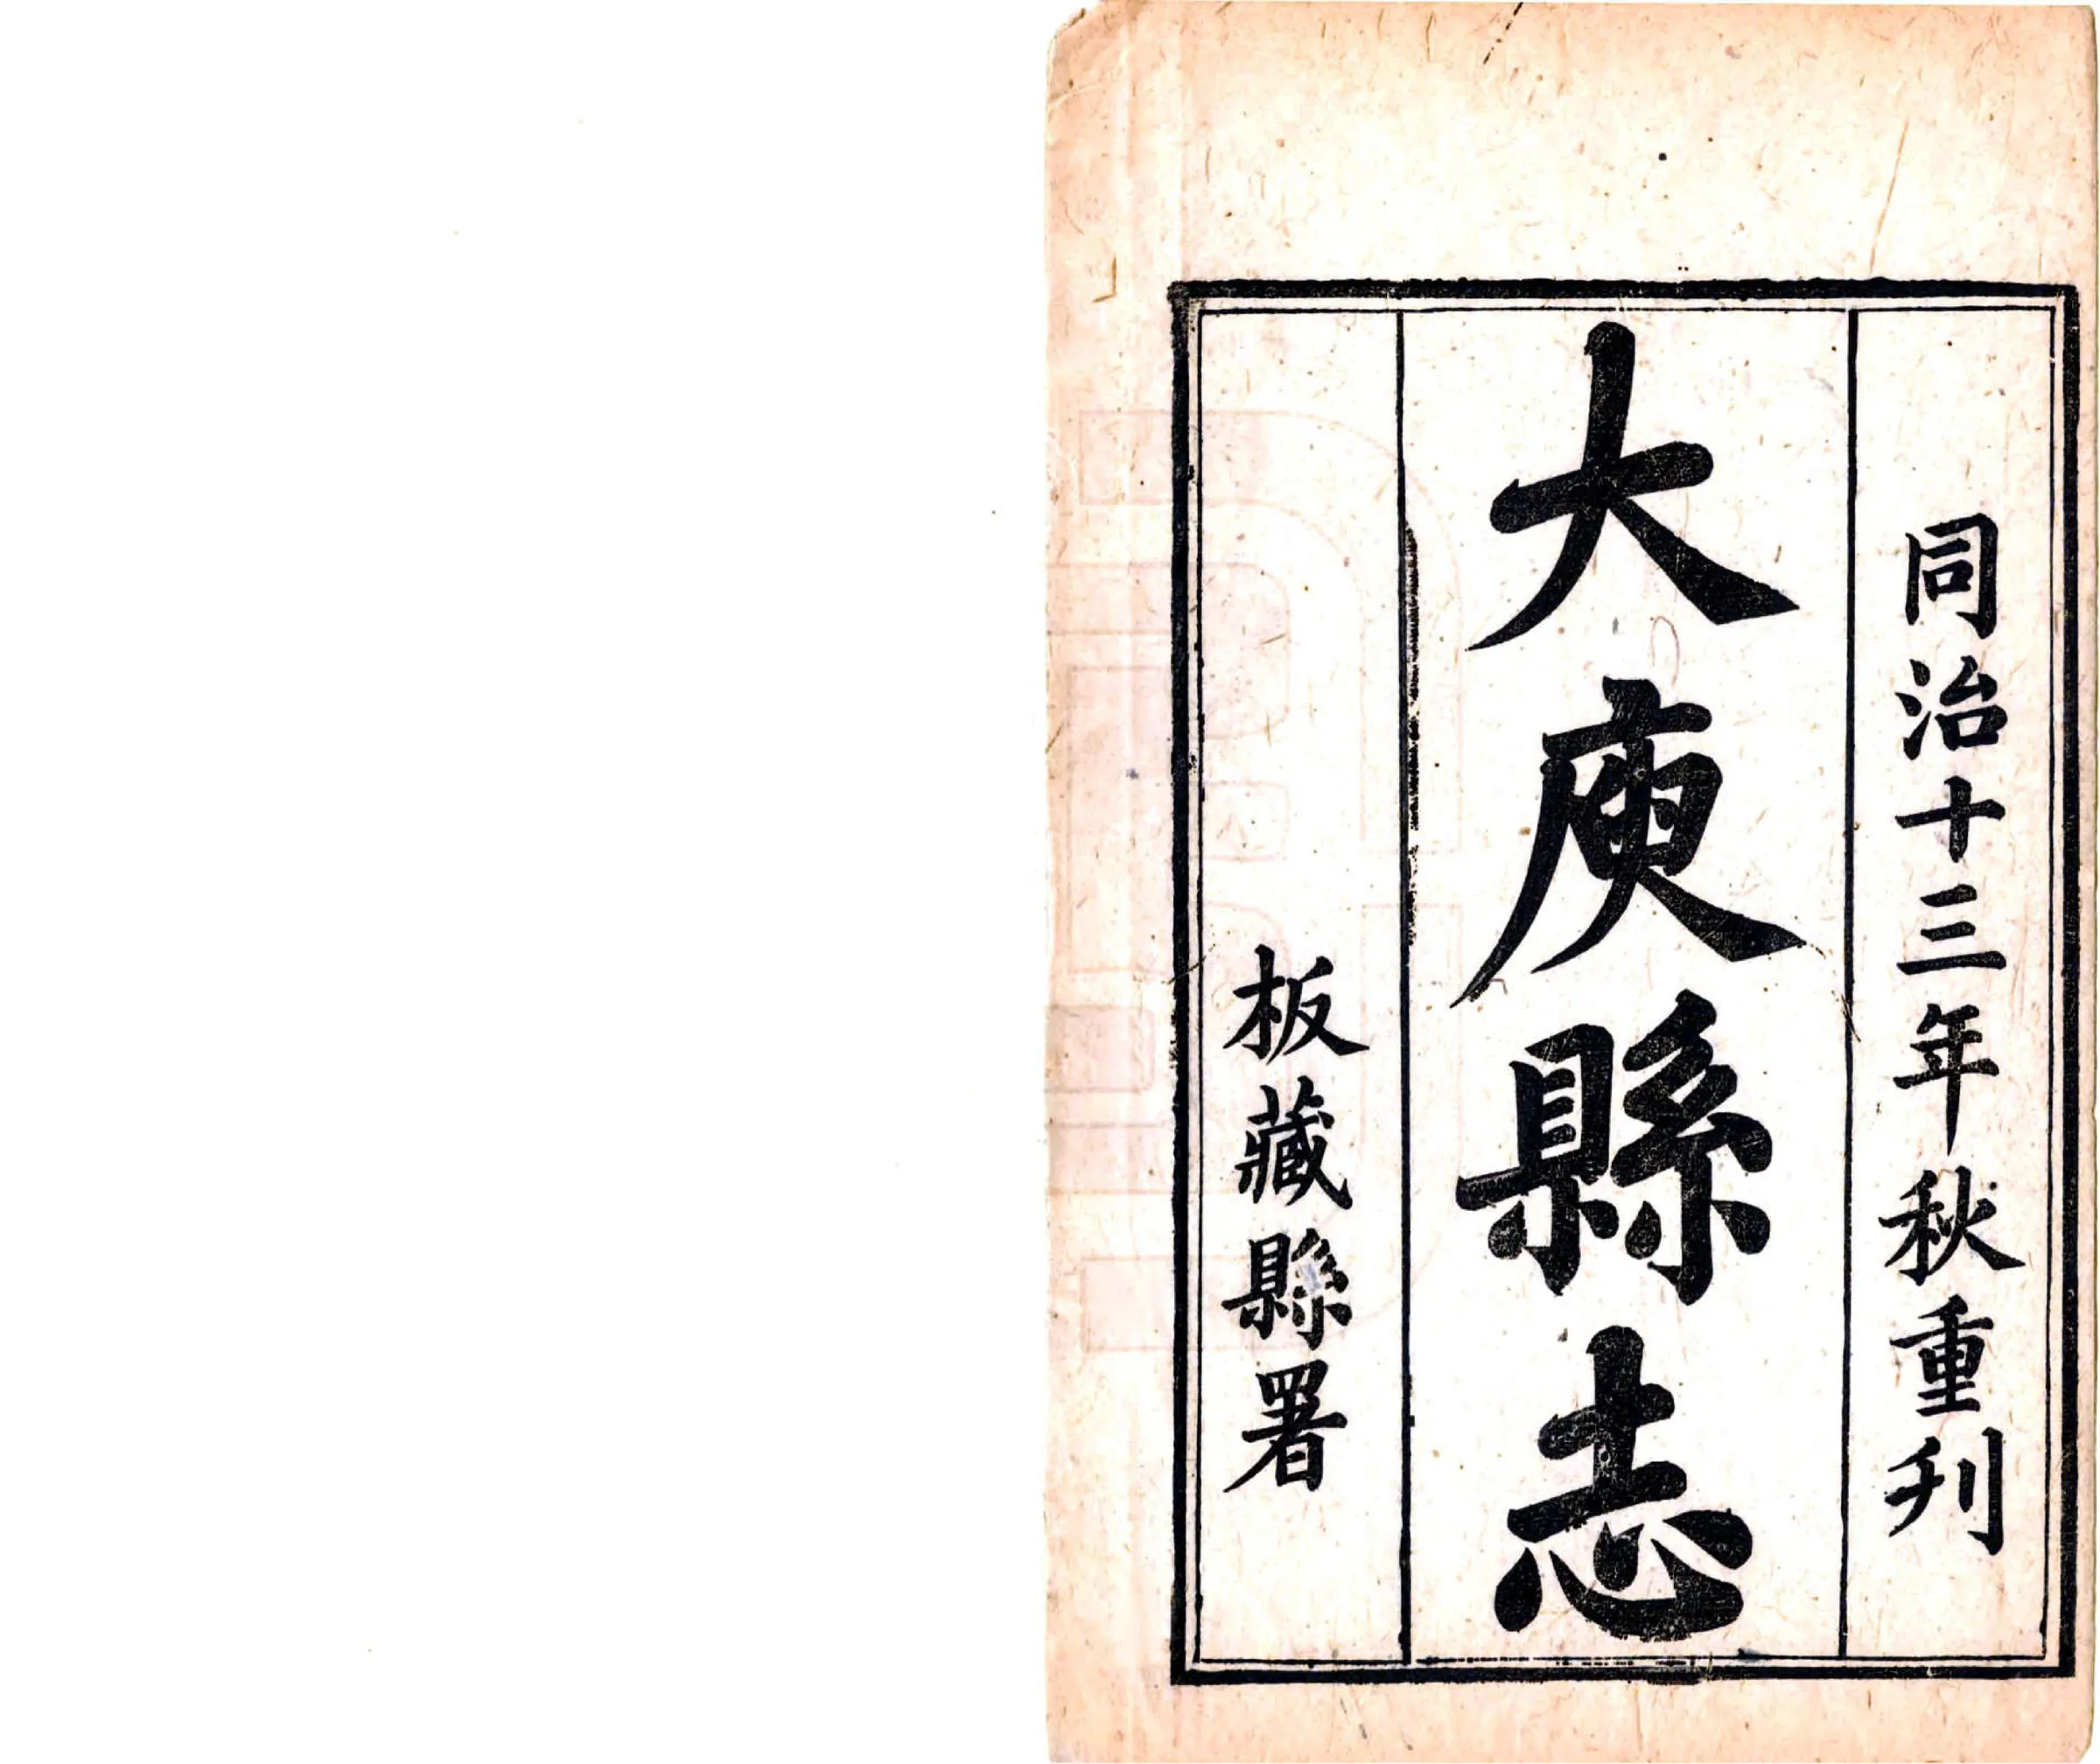 同治十三年秋重刋
大庾縣志
板藏縣署